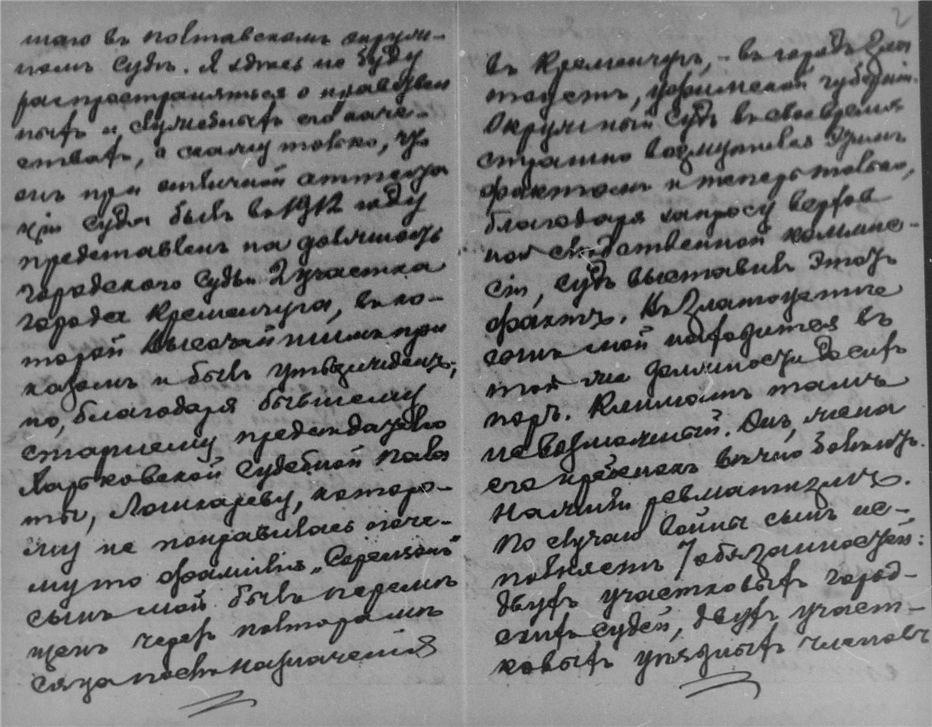 шаго въ полтавскомъ окруж-
номъ судѣ. Я здѣсь не буду
распространяться о нравствен
ныхъ и служебныхъ его каче-
ствахъ, а скажу только, что
онъ при отличной аттеста
ціи суда былъ въ 1912 году
представленъ на должность
городского судьи 2 участка
города Кременчуга, въ ко-
торой Высочайшимъ при
казомъ и былъ утвержденъ;
но, благодаря бывшему
старшему предсѣдателю
Харьковской судебной пала
ты, Лошкареву, которо-
му не понравилась поче-
му то фамилія
сынъ мой былъ перемѣ
щенъ черезъ полтора мѣ
сяца послѣ назначенія
2
въ Кременчугъ, - въ городъ Зла
тоустъ, уфимской губерніи.
Окружный судъ въ свое время
страшно возмутился этимъ
фактомъ и теперь только,
благодаря запросу верхов
ной слѣдственной коммис-
сіи, судъ выставилъ этотъ
фактъ. Въ Златоустѣ
сынъ мой находится въ
той же должности до сихъ
поръ. Климатъ тамъ
невозможный. Онъ, жена
его ребенокъ вѣчно болѣютъ.
Нажили ревматизмъ.
По случаю войны сынъ ис-
полняетъ 7 обязанностей:
двухъ участковыхъ город-
скихъ судей, двухъ участ-
ковыхъ уѣздныхъ членовъ